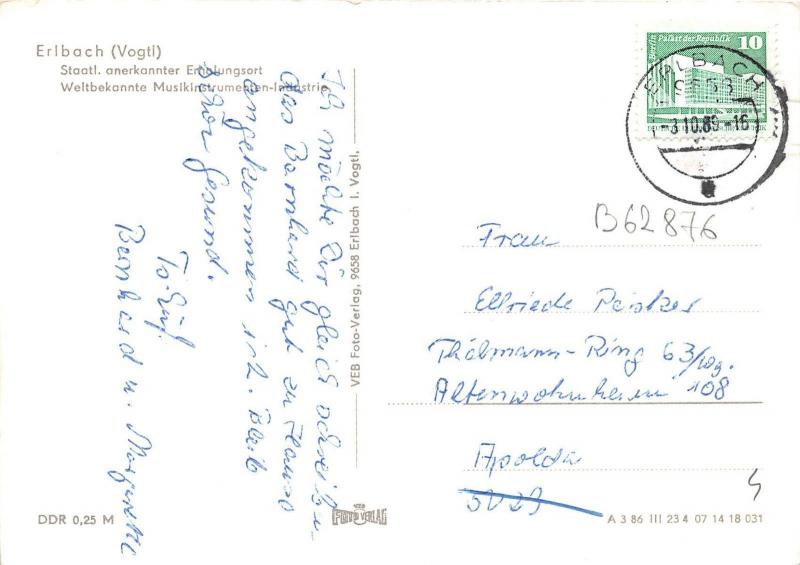 Erlbach (Vogtl)
Staatl. anerkannter Erholungsort
Weltbekannte Musikinstrumenten-Industrie
Ich möchte Dir gleich schreiben
das Bernhard gut zu Hause
angekommen ist. Bleib
schön Gesund.
Bernhard u. Margarethe
VEB Foto-Verlag, 9658 Erlbach i. Vogtl.
Berlin Palast der Republik 10
ERLBACH
-3.10.89-16
B62876
Frau
Elfriede
Thälmann-Ring 63/
Altenwohnheim 108
Apolda
DDR 0,25 M
FOTO VERLAG
A 3 86 III 23 4 07 14 18 031